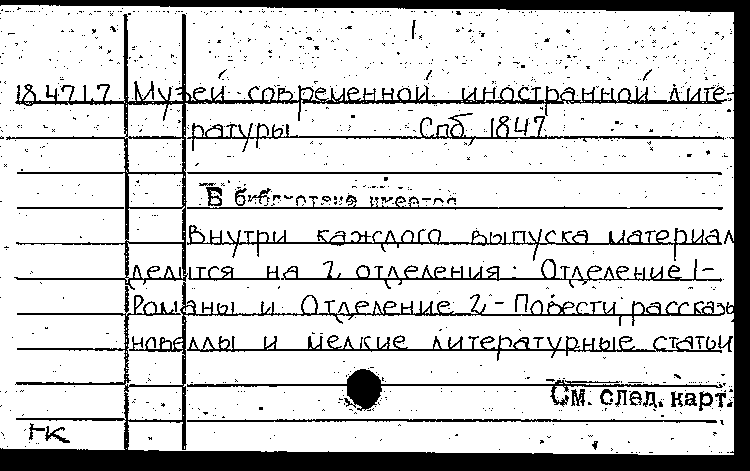 1
18.471.7 Музей современной иностранной лите-
ратуры Спб, 1847
В библиотеке имеется
Внутри каждого выпуска материал
делится на 2 отделения: Отделение 1-
Романы и Отделение 2,- Повести, рассказы
новеллы и мелкие литературные статьи
См. след. карт.
ГК